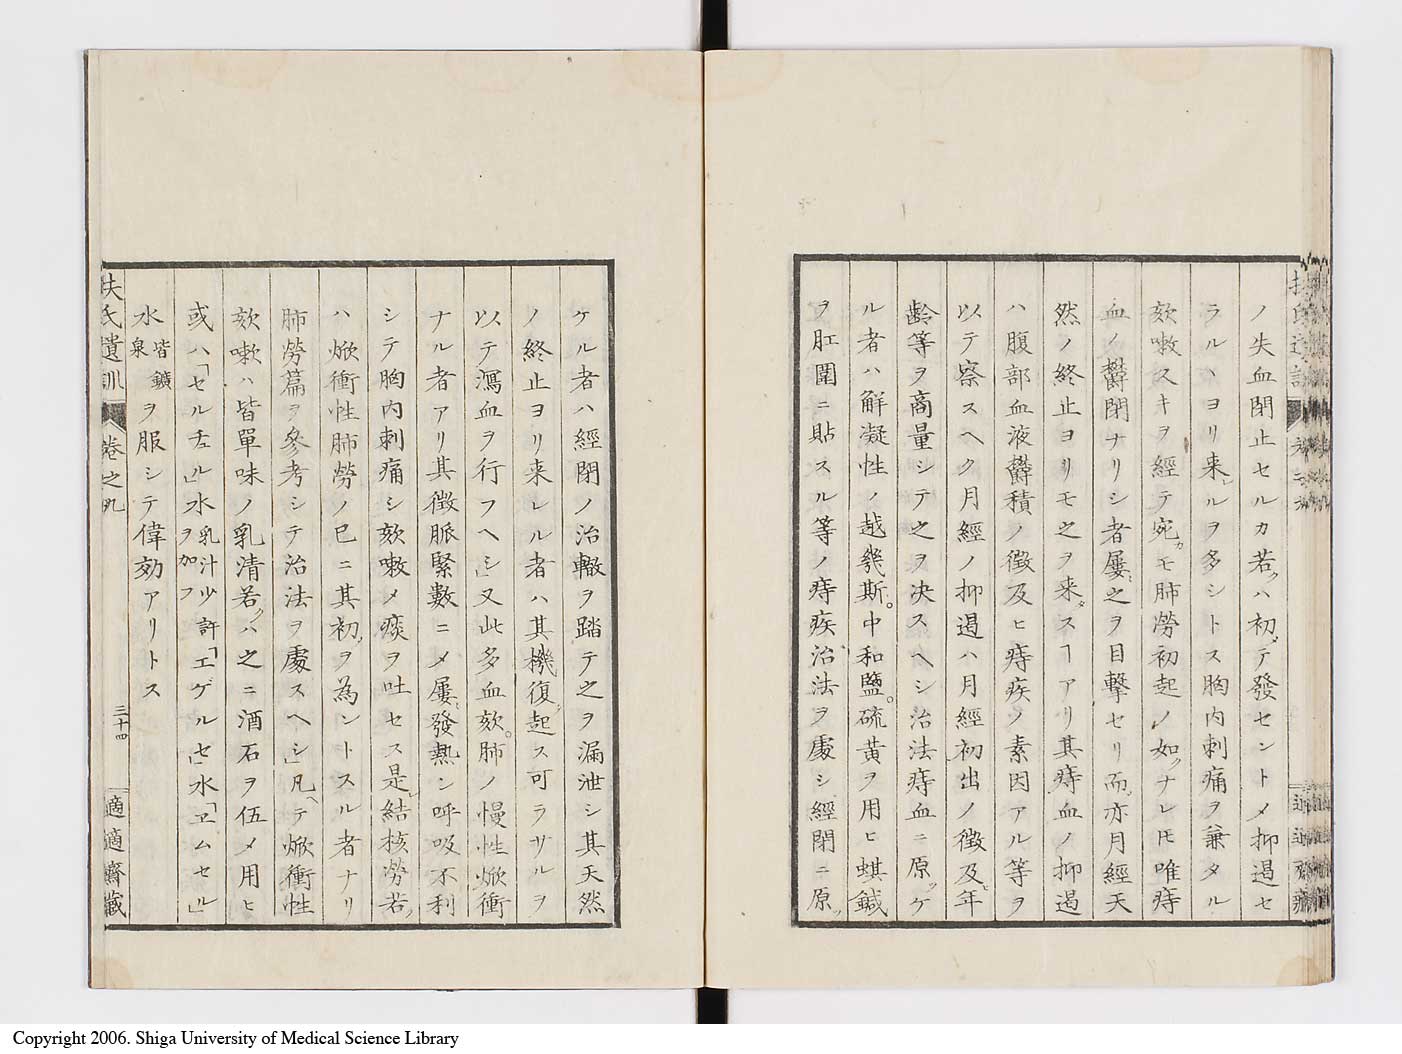 ノ失血閉止セルカ若クハ初メテ發セントメ抑遏セ
ラルヽヨリ来ルヲ多シトス胸内刺痛ヲ兼タル
欬嗽スキヲ經テ宛カモ肺勞初起ノ如クナレ𪜈唯痔
血ノ欝閉ナリシ者屢之ヲ目撃セリ而亦月經天
然ノ終止ヨリモ之ヲ来タスヿアリ其痔血ノ抑遏
ハ腹部血液欝積ノ徴及ヒ痔疾ノ素因アル等ヲ
以テ察スヘク月經ノ抑遏ハ月經初出ノ徴及ヒ年
齢等ヲ商量シテ之ヲ决スヘシ治法痔血ニ原ツケ
ル者ハ解凝性ノ越幾斯。中和鹽。硫黄ヲ用ヒ蜞鍼
ヲ肛圍ニ貼スル等ノ痔疾治法ヲ處シ經閉ニ原ツ
ケル者ハ經閉ノ治轍ヲ踏テ之ヲ漏泄シ其天然
ノ終止ヨリ来レル者ハ其機復起ス可ラサルヲ
以テ瀉血ヲ行フヘシ」又此多血欬。肺ノ慢性焮衝
ナル者アリ其徴脈緊數ニメ屢發熱シ呼吸不利
シテ胸内刺痛シ欬嗽メ痰ヲ吐セス是レ結核勞若ク
ハ焮衝性肺勞ノ已ニ其初メヲ為ントスル者ナリ
肺勞篇ヲ參考シテ治法ヲ處スヘシ」凡ヘテ焮衝性
欬嗽ハ皆單味ノ乳清若クハ之ニ酒石ヲ伍メ用ヒ
或ハ「セルテル」水乳汁少許ヲ加フ「エゲルセ」水「ヱムセル」
水皆鑛泉ヲ服シテ偉効アリトス
扶氏遺訓 卷之九 三十四 適適齋藏